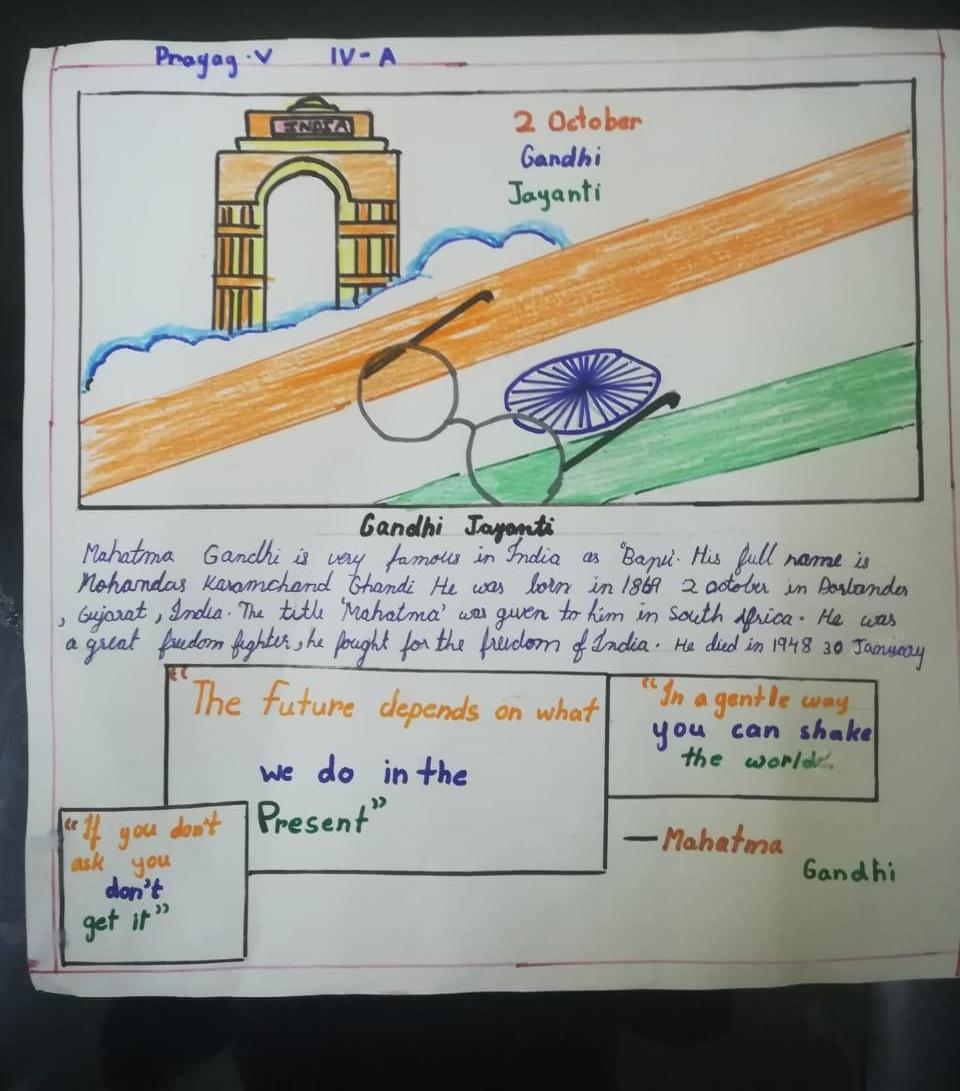 Prayag.V IV-A
INDIA
2 October
Gandhi
Jayanti
Gandhi Jayanti
Mahatma Gandhi is very famous in India as 'Bapu'. His full name is
Mohamdas Karamchand Ghandi He was born in 1869 2 october in Porbandar
, Gujarat, India. The title 'Mahatma' was given to him in South Africa. He was
a great freedom fighter, he fought for the freedom of India. He died in 1948 30 January
"The future depends on what
we do in the
Present"
"In a gentle way
you can shake
the world
"If you don't
ask you
don't
get it"
— Mahatma
Gandhi